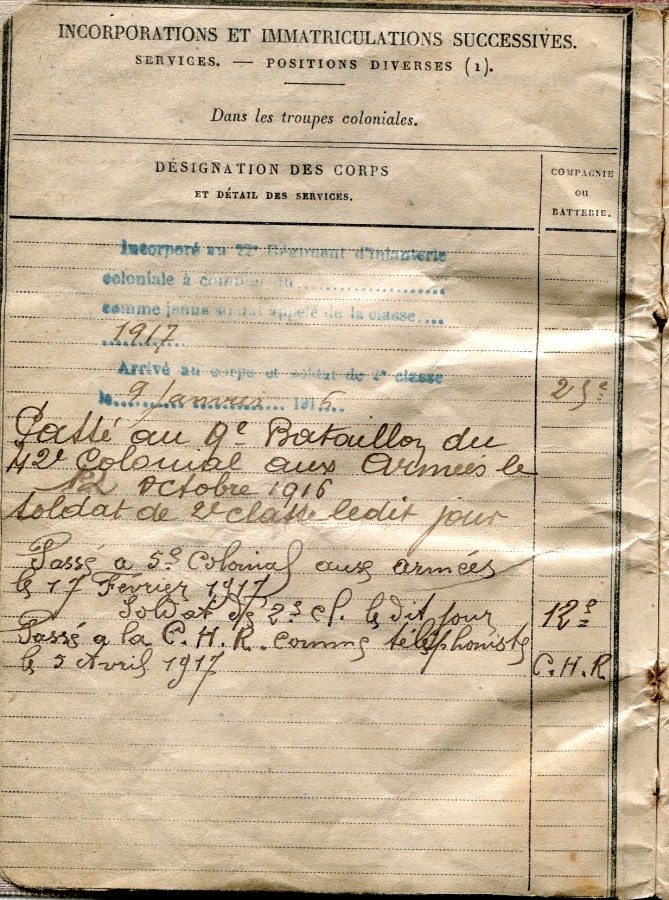 INCORPORATIONS ET IMMATRICULATIONS SUCCESSIVES.
SERVICES. — POSITIONS DIVERSES (1).
Dans les troupes coloniales.
DÉSIGNATION DES CORPS
ET DÉTAIL DES SERVICES.
COMPAGNIE
OU
BATTERIE.
Incorporé au 22e Régiment d'Infanterie
coloniale à compter du
comme jeune soldat appelé de la classe
1917
Arrivé au corps et soldat de 2e classe
le 9 Janvier 1916
25e
Passé au 9e Bataillon du
42e Colonial aux Armées le
Octobre 1916
soldat de 2e classe ledit jour
Passé a 5e Colonial aux armées
le 17 Février 1917
Soldat de 2e cl. le dit jour 12e
Passé a la C.H.R. comme téléphoniste
le 5 Avril 1917 C.H.R